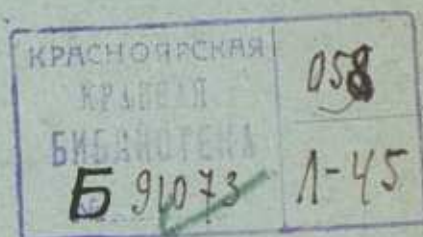 КРАСНОЯРСКАЯ
КРАЕВАЯ
БИБЛИОТЕКА
Б 91073
058
Л-45